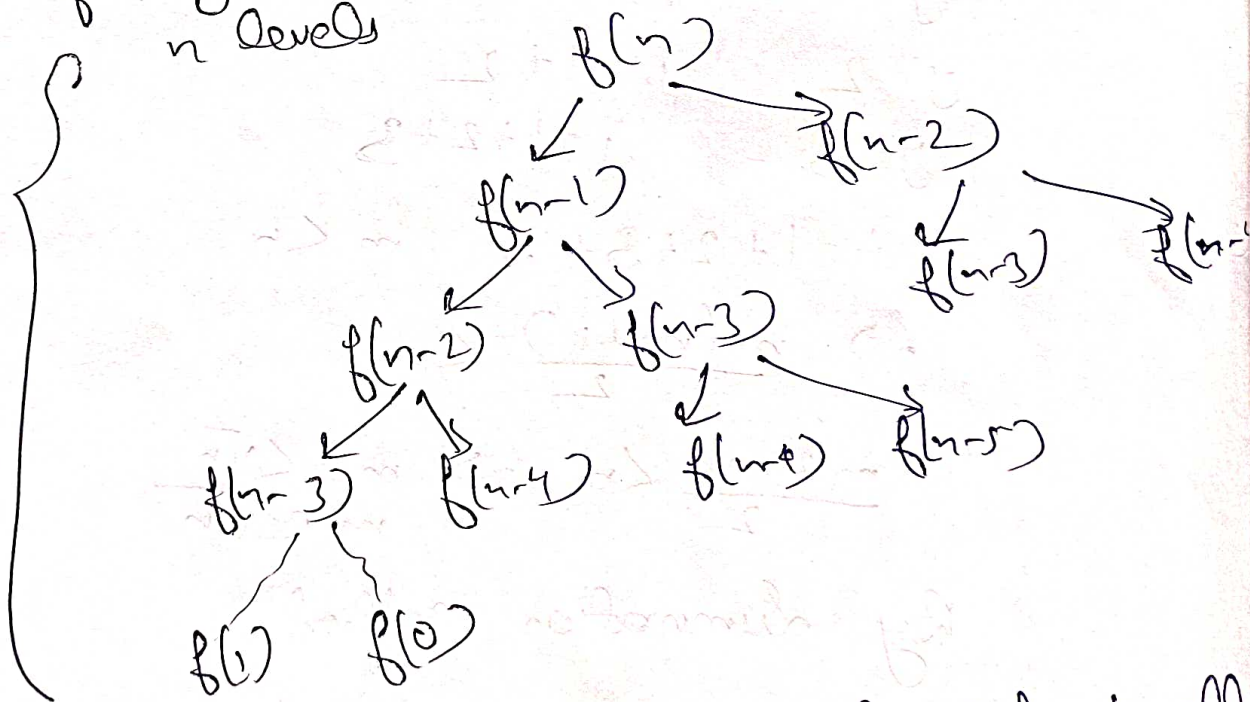 n levels
f(n)
f(n-2)
f(n-1)
f(n-3)
f(n-2)
f(n-3)
f(n-3)
f(n-4)
f(n-4)
f(n-5)
f(1)
f(0)